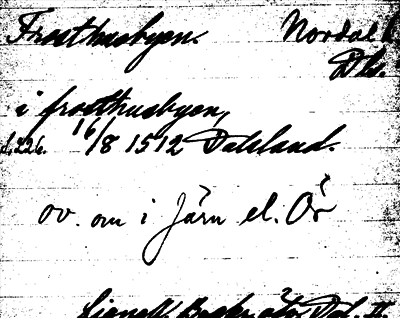 Frosthusbyen. Nordal h
Dls.
i frosthusbyen,
s. 226. 16/8 1512 Dalsland.
ov. om i Järn el. Ör
Dal. II.